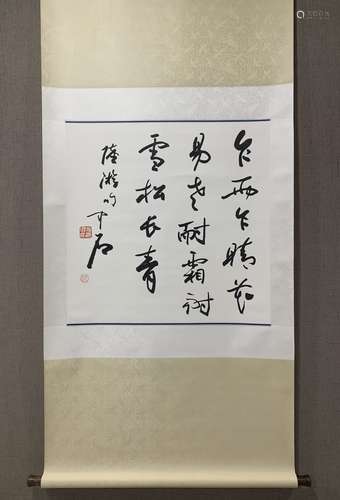 乍雨乍晴花
易老耐霜耐
雪松长青
陸游句中石